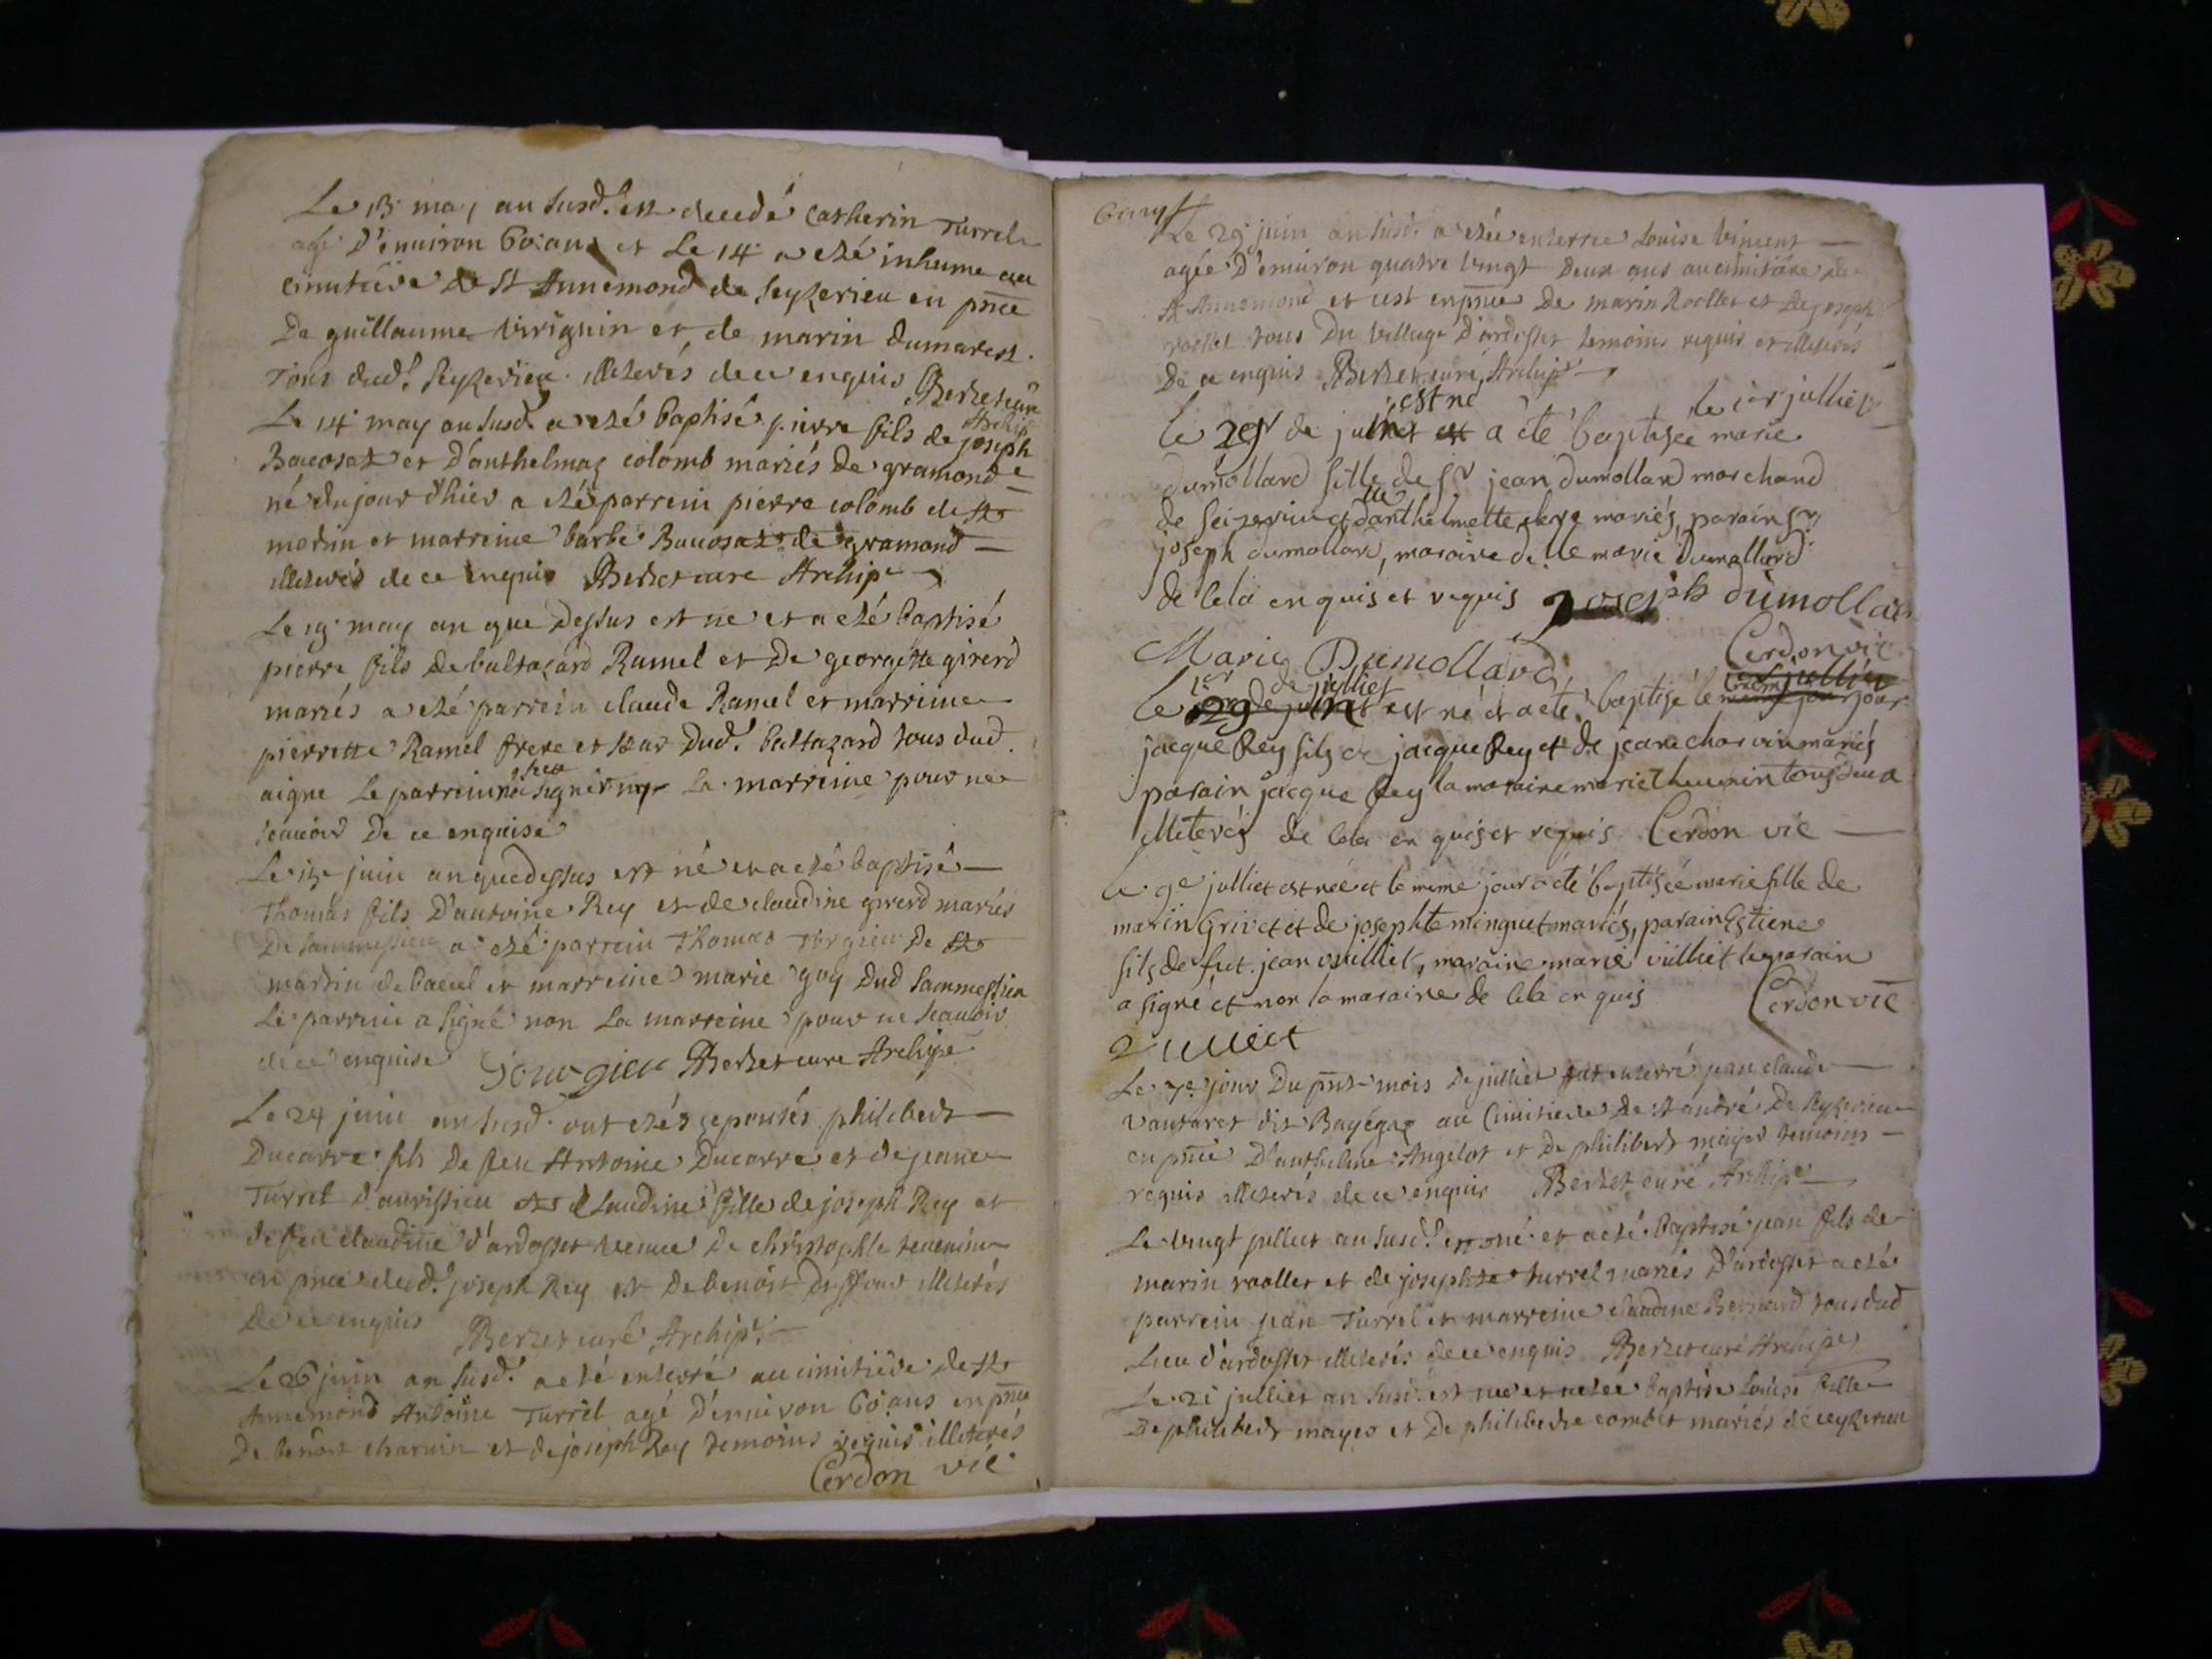 Le 13 may an susd. est decedé Catherin Turrel
agé d'environ 60 ans et le 14 a esté inhumé au
cimitiere de St Annemond de Seyzerieu en pnce
De guillaume virignin et de marin dumarest
Tous dud. Seyzerieu illeterés de ce enquis Berzet curé
Archip
Le 14 may an susd. a esté baptisé pierre fils de joseph
Bavosat et d'anthelmaz colomb mariés de gramond
né du jour d'hier a esté parrein pierre colomb de st
martin et marreine barbe Bavosat de gramond
illeterés de ce enquis Berzet curé Archip
Le 19 may an que dessus est ne et a esté baptisé
pierre fils de baltazard Ramel et De georgette girerd
mariés a esté parrein claude Ramel et marreine
pierrette Ramel frere et sœur Dud. baltazard tous dud.
aigne Le parrein signer ny la marreine pour ne
scauoir De ce enquise
Le 15 juin an que dessus est né et a esté baptisé
Thomas fils D'antoine Rey et de claudine girerd mariés
De sammessieu a esté parrein Thomas de st
martin de bavel et marreine marie goy Dud sammessieu
Le parrein a signé non La marreine pour ne scauoir
de ce enquise Berzet curé Archipe
Le 24 juin an susd. ont estés epousés philibert
Ducarre fils De feu Antoine Ducarre et de jeanne
Turrel d'avrissieu et claudine fille de joseph Rey et
de feu claudine d'ardosset veuve De christophle tevenin
en pnce dud. joseph Rey et De benoist illeterés
de ce enquis Berzet curé Archip.
Le 26 juin an susd. a eté enterré au cimitiere de st
Annemond Antoine Turrel agé d'environ 60 ans en pnce
De benoist charvin et de joseph Rey temoins requis illeterés
Cerdon vic
Le 29 juin an susd. a estée enterrée Louise Vincent
agée D'environ quatre vingt Deux ans au cimitiere de
St Annemond et cest en pnce De marin Roollet et De joseph
roollet tous Du village d'ardosset temoins requis et illeterés
De ce enquis Berzet curé Archip
est né le 1er julliet
Le 29 de a été baptisée marie
dumollard fille de sr jean dumollard marchand
de seizerieu et d'anthelmette mariés, parain sr
joseph dumollard, maraine de.lle marie Dumollard
de cela enquis et requis joseph dumollard
Marie Dumollard Cerdon vic
1er de julliet
Le 29 est né et a été baptisé le jour
jacque Rey fils de jacque Rey et de jeane charvin mariés
parain jacque Rey la maraine marie Thevenin tous deux
illeterés de cela enquis et requis Cerdon vic
Le 9e julliet est née et le meme jour a été baptisée marie fille de
marin Grivet et de josephte minguet mariés, parain Estiene
fils de fut jean vuilliet, maraine marie vuilliet le parain
a signé et non la maraine de cela enquis Cerdon vic
vuilliet
Le 7e jour Du pnt mois De julliet fut enterré jean claude
vautaret dit au Cimitiere De st andré De seyzerieu
en pnce D'anthelme Angelot et De philibert mayer temoins
requis illeterés de ce enquis Berzet curé Archip
Le vingt julliet an susd. est né et a eté baptisé jean fils de
marin roollet et de josephte turrel mariés D'ardosset a esté
parrein jean Turrel et marreine claudine Bernard tous dud
Lieu d'ardosset illeterés de ce enquis Berzet curé Archip
Le 21 julliet an susd. est nee et a estée baptisée louise fille
De philibert mayer et De philiberte combet mariés de ceyzerieu